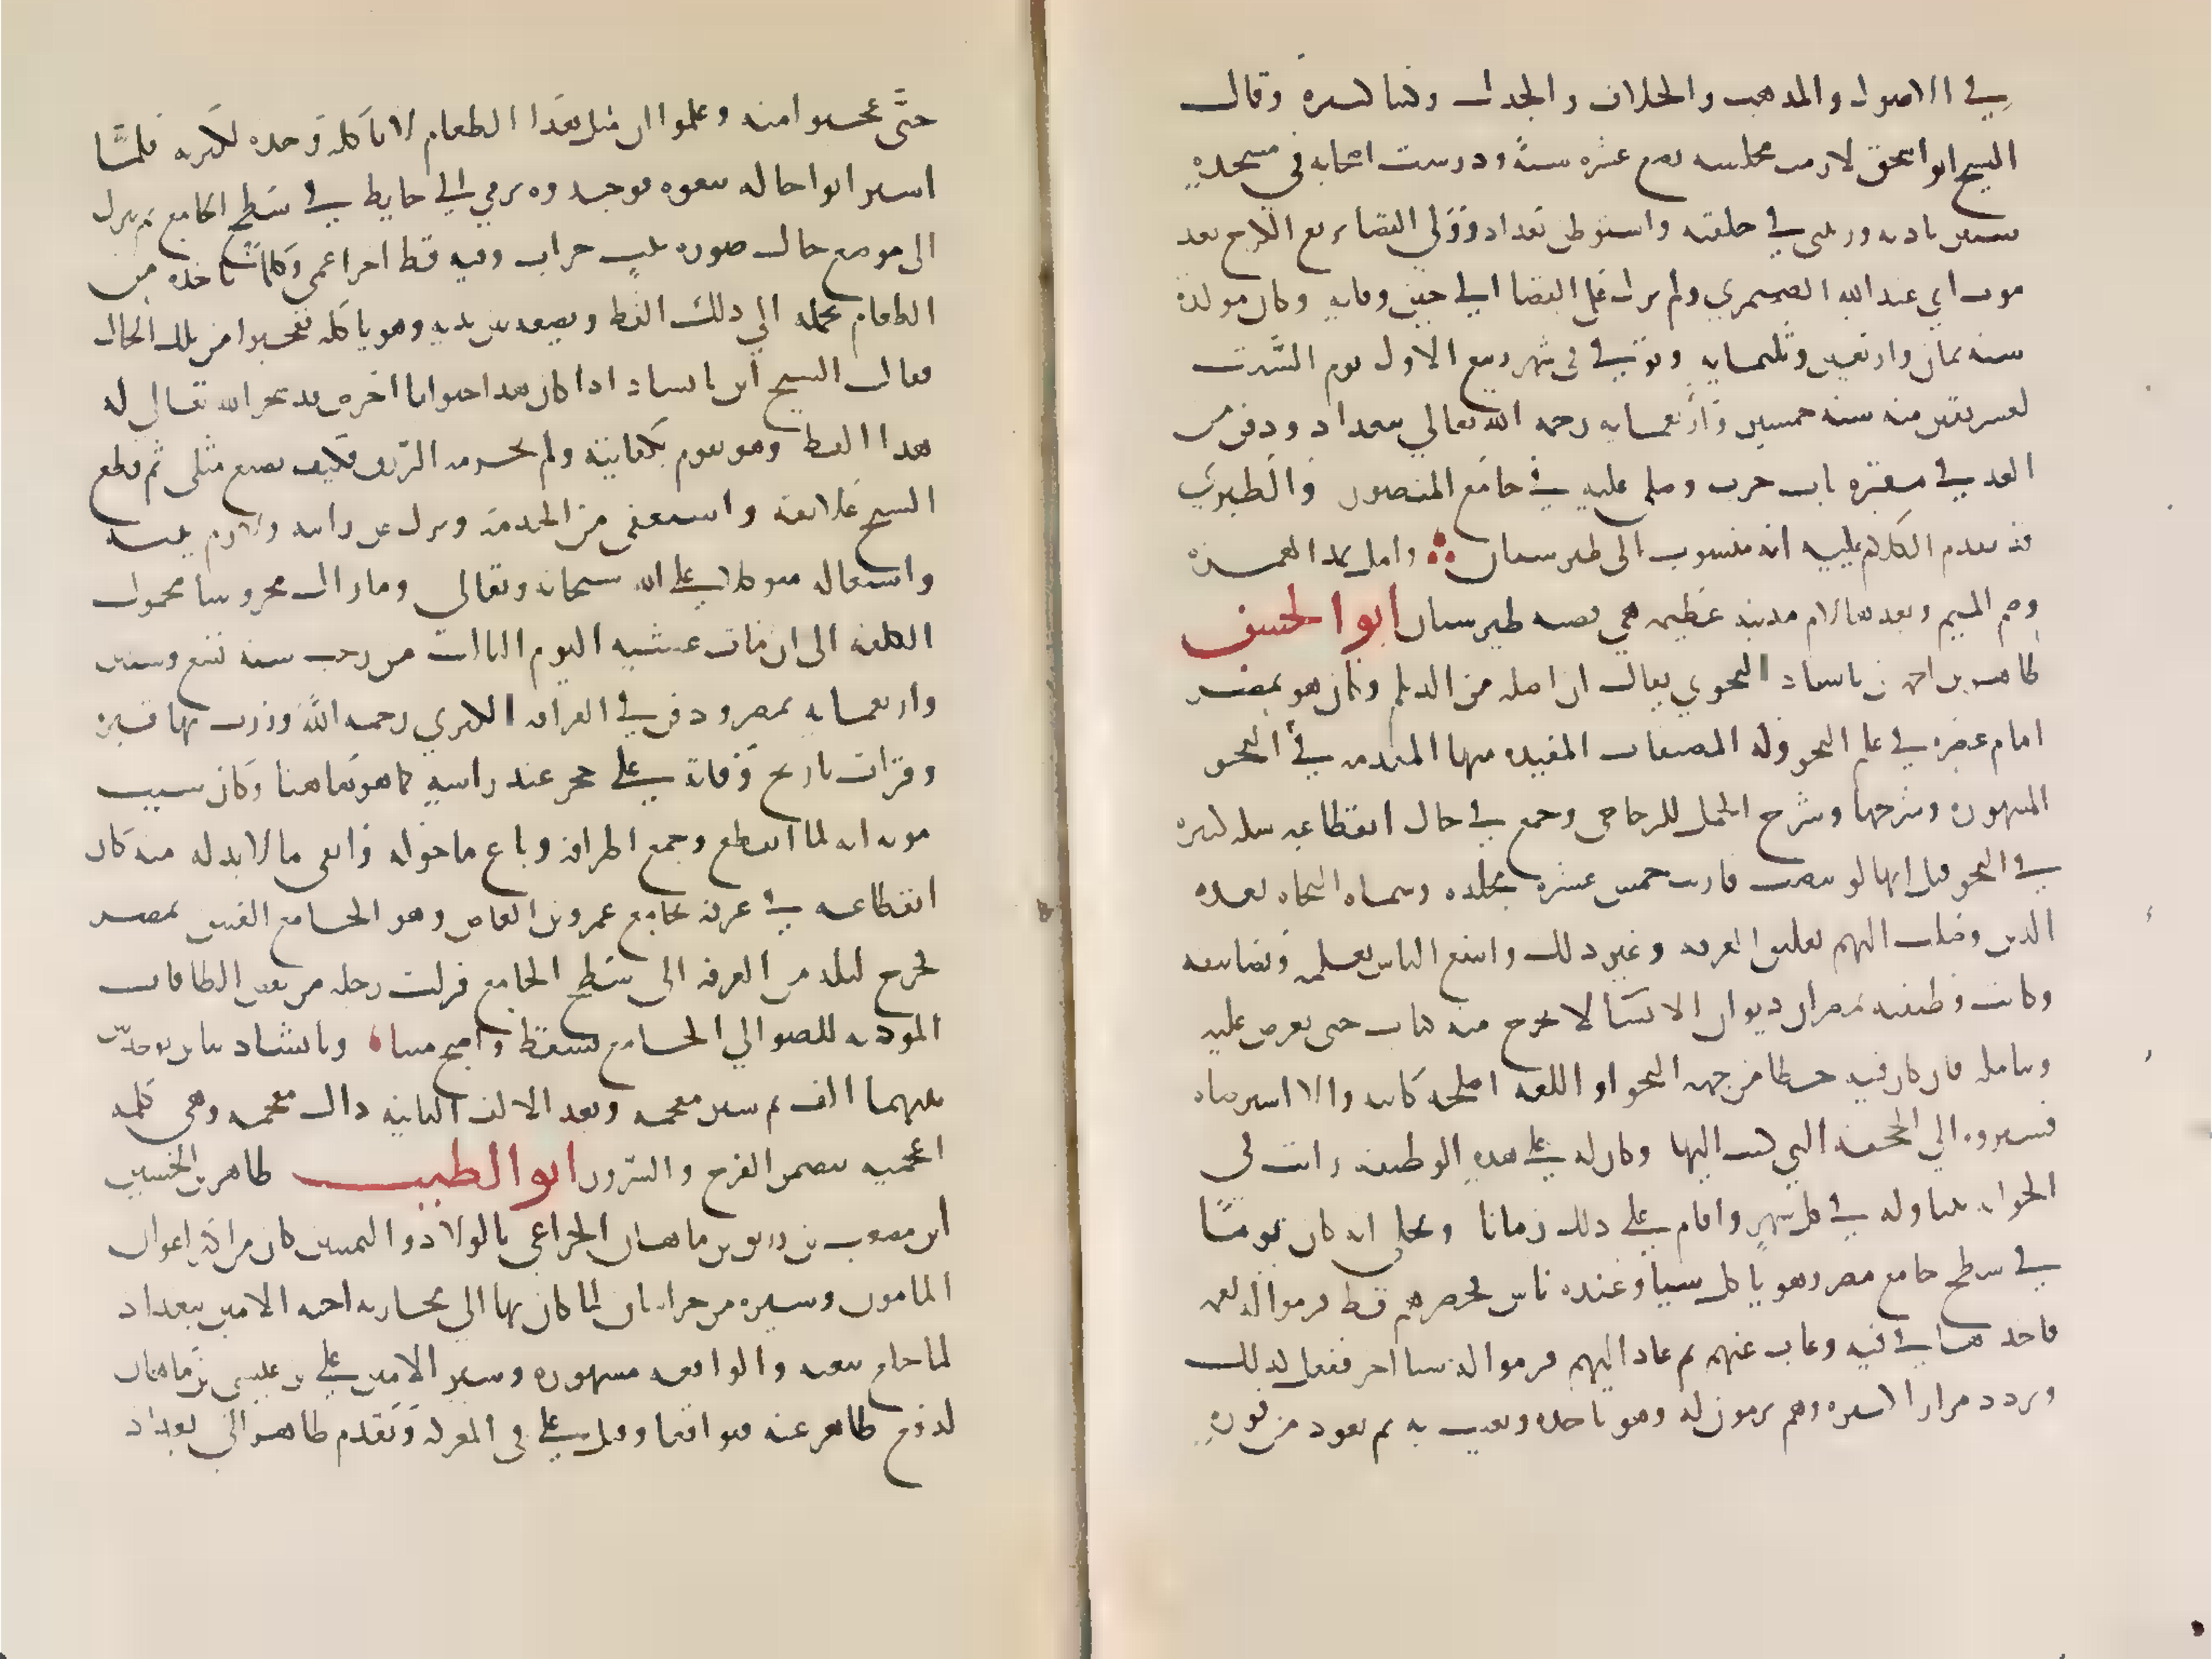 في الاصول والمذهب والخلاف والجدل وكتبا كثيرة وقال
الشيخ ابو اسحق لازمت مجلسه بضع عشره سنة ودرست اصحابه في مسجده
سنين باذنه ورتبني في حلقته واستوطن بغداد وولي القضا بربع الكرخ بعد
موت ابي عبد الله الصيمري ولم يزل على القضا الى حين وفاته وكان مولده
سنه ثمان واربعين وثلثمايه وتوفي في شهر ربيع الاول يوم السبت
لعشر بقين منه سنه خمسين واربعمايه رحمه الله تعالى ببغداد ودفن من
الغد في مقبره باب حرب وصلى عليه في جامع المنصور والطبري
قد تقدم الكلام عليه انه منسوب الى طبرستان وامل بمد الهمزه
وضم الميم وبعدها لام مدينه عظيمه هي قصبه طبرستان ابو الحسن
طاهر بن احمد بن بابشاد النحوي يقال ان اصله من الديلم وكان هو بمصر
امام عصره في علم النحو وله المصنفات المفيده منها المقدمه في النحو
المشهوره وشرحها وشرح الجمل للزجاجي وجمع في حال انقطاعه تعليقه كبيره
في النحو قيل انها لو بيضت قاربت خمس عشره مجلده وسماه النحاه بعده
الذين وصلت اليهم تعليق الغرفه وغير ذلك وانتفع الناس بعلمه وتصانيفه
وكانت وظيفته بمصر ان ديوان الانشا لا يخرج منه كتاب حتى يعرض عليه
ويتامله فان كان فيه خطا من جهه النحو او اللغه اصلحه كاتبه والا استرضاه
فسيروه الى الجهه التي كتب اليها وكان له على هذه الوظيفه راتب في
الخزانه يتناوله في كل شهر واقام على ذلك زمانا ويحكى انه كان يوما
في سطح جامع مصر وهو ياكل شيا وعنده ناس فحضرهم قط فرموا له لقمه
فاخذها في فيه وغاب عنهم ثم عاد اليهم فرموا له شيا اخر ففعل كذلك
وتردد مرارا كثيره وهم يرمون له وهو ياخذه ويغيب به ثم يعود من فوره
حتى عجبوا منه وعلموا ان مثل هذا الطعام لا ياكله وحده لكثرته فلما
استرابوا حاله تبعوه فوجدوه يرقى الى حايط في سطح الجامع ثم ينزل
الى موضع خال صوره بيت خراب وفيه قط اخر اعمى وكلما ياخذه من
الطعام يحمله الى ذلك القط ويضعه بين يديه وهو ياكله فعجبوا من تلك الحال
فقال الشيخ ابن بابشاد اذا كان هذا حيوانا اخرس قد سخر الله تعالى له
هذا القط وهو يقوم بكفايته ولم يحرمه الرزق فكيف يضيع مثلي ثم قطع
الشيخ علايقه واستعفى من الخدمه ونزل عن راتبه ولازم بيته
واشتغاله متوكلا على الله سبحانه وتعالى وما زال محروسا محمول
الكلفه الى ان مات عشيه اليوم الثالث من رجب سنه تسع وستين
واربعمايه بمصر ودفن في القرافه الكبرى رحمه الله وزرت بها قبره
وقرات تاريخ وفاته على حجر عند راسه كما هو هاهنا وكان سبب
موته انه لما انقطع وجمع اطرافه وباع ما حوله وابقى ما لا بد له منه كان
انقطاعه في غرفه بجامع عمرو بن العاص وهو الجامع العتيق بمصر
فخرج ليله من الغرفه الى سطح الجامع فزلت رجله من بعض الطاقات
الموديه للضو الى الجامع فسقط واصبح ميتا وبابشاد بباين موحدتين
بينهما الف ثم شين معجمه وبعد الالف الثانيه ذال معجمه وهي كلمه
اعجميه تتضمن الفرح والسرور ابو الطيب طاهر بن الحسين
ابن مصعب بن رزيق بن ماهان الخزاعي بالولا ذو اليمينين كان من اكبر اعوان
المامون وسيره من خراسان لما كان بها الى محاربه اخيه الامين ببغداد
لما خلع بيعته والواقعه مشهوره وسير الامين علي بن عيسى بن ماهان
لدفع طاهر عنه فتواقعا وقتل علي في المعركه وتقدم طاهر الى بغداد